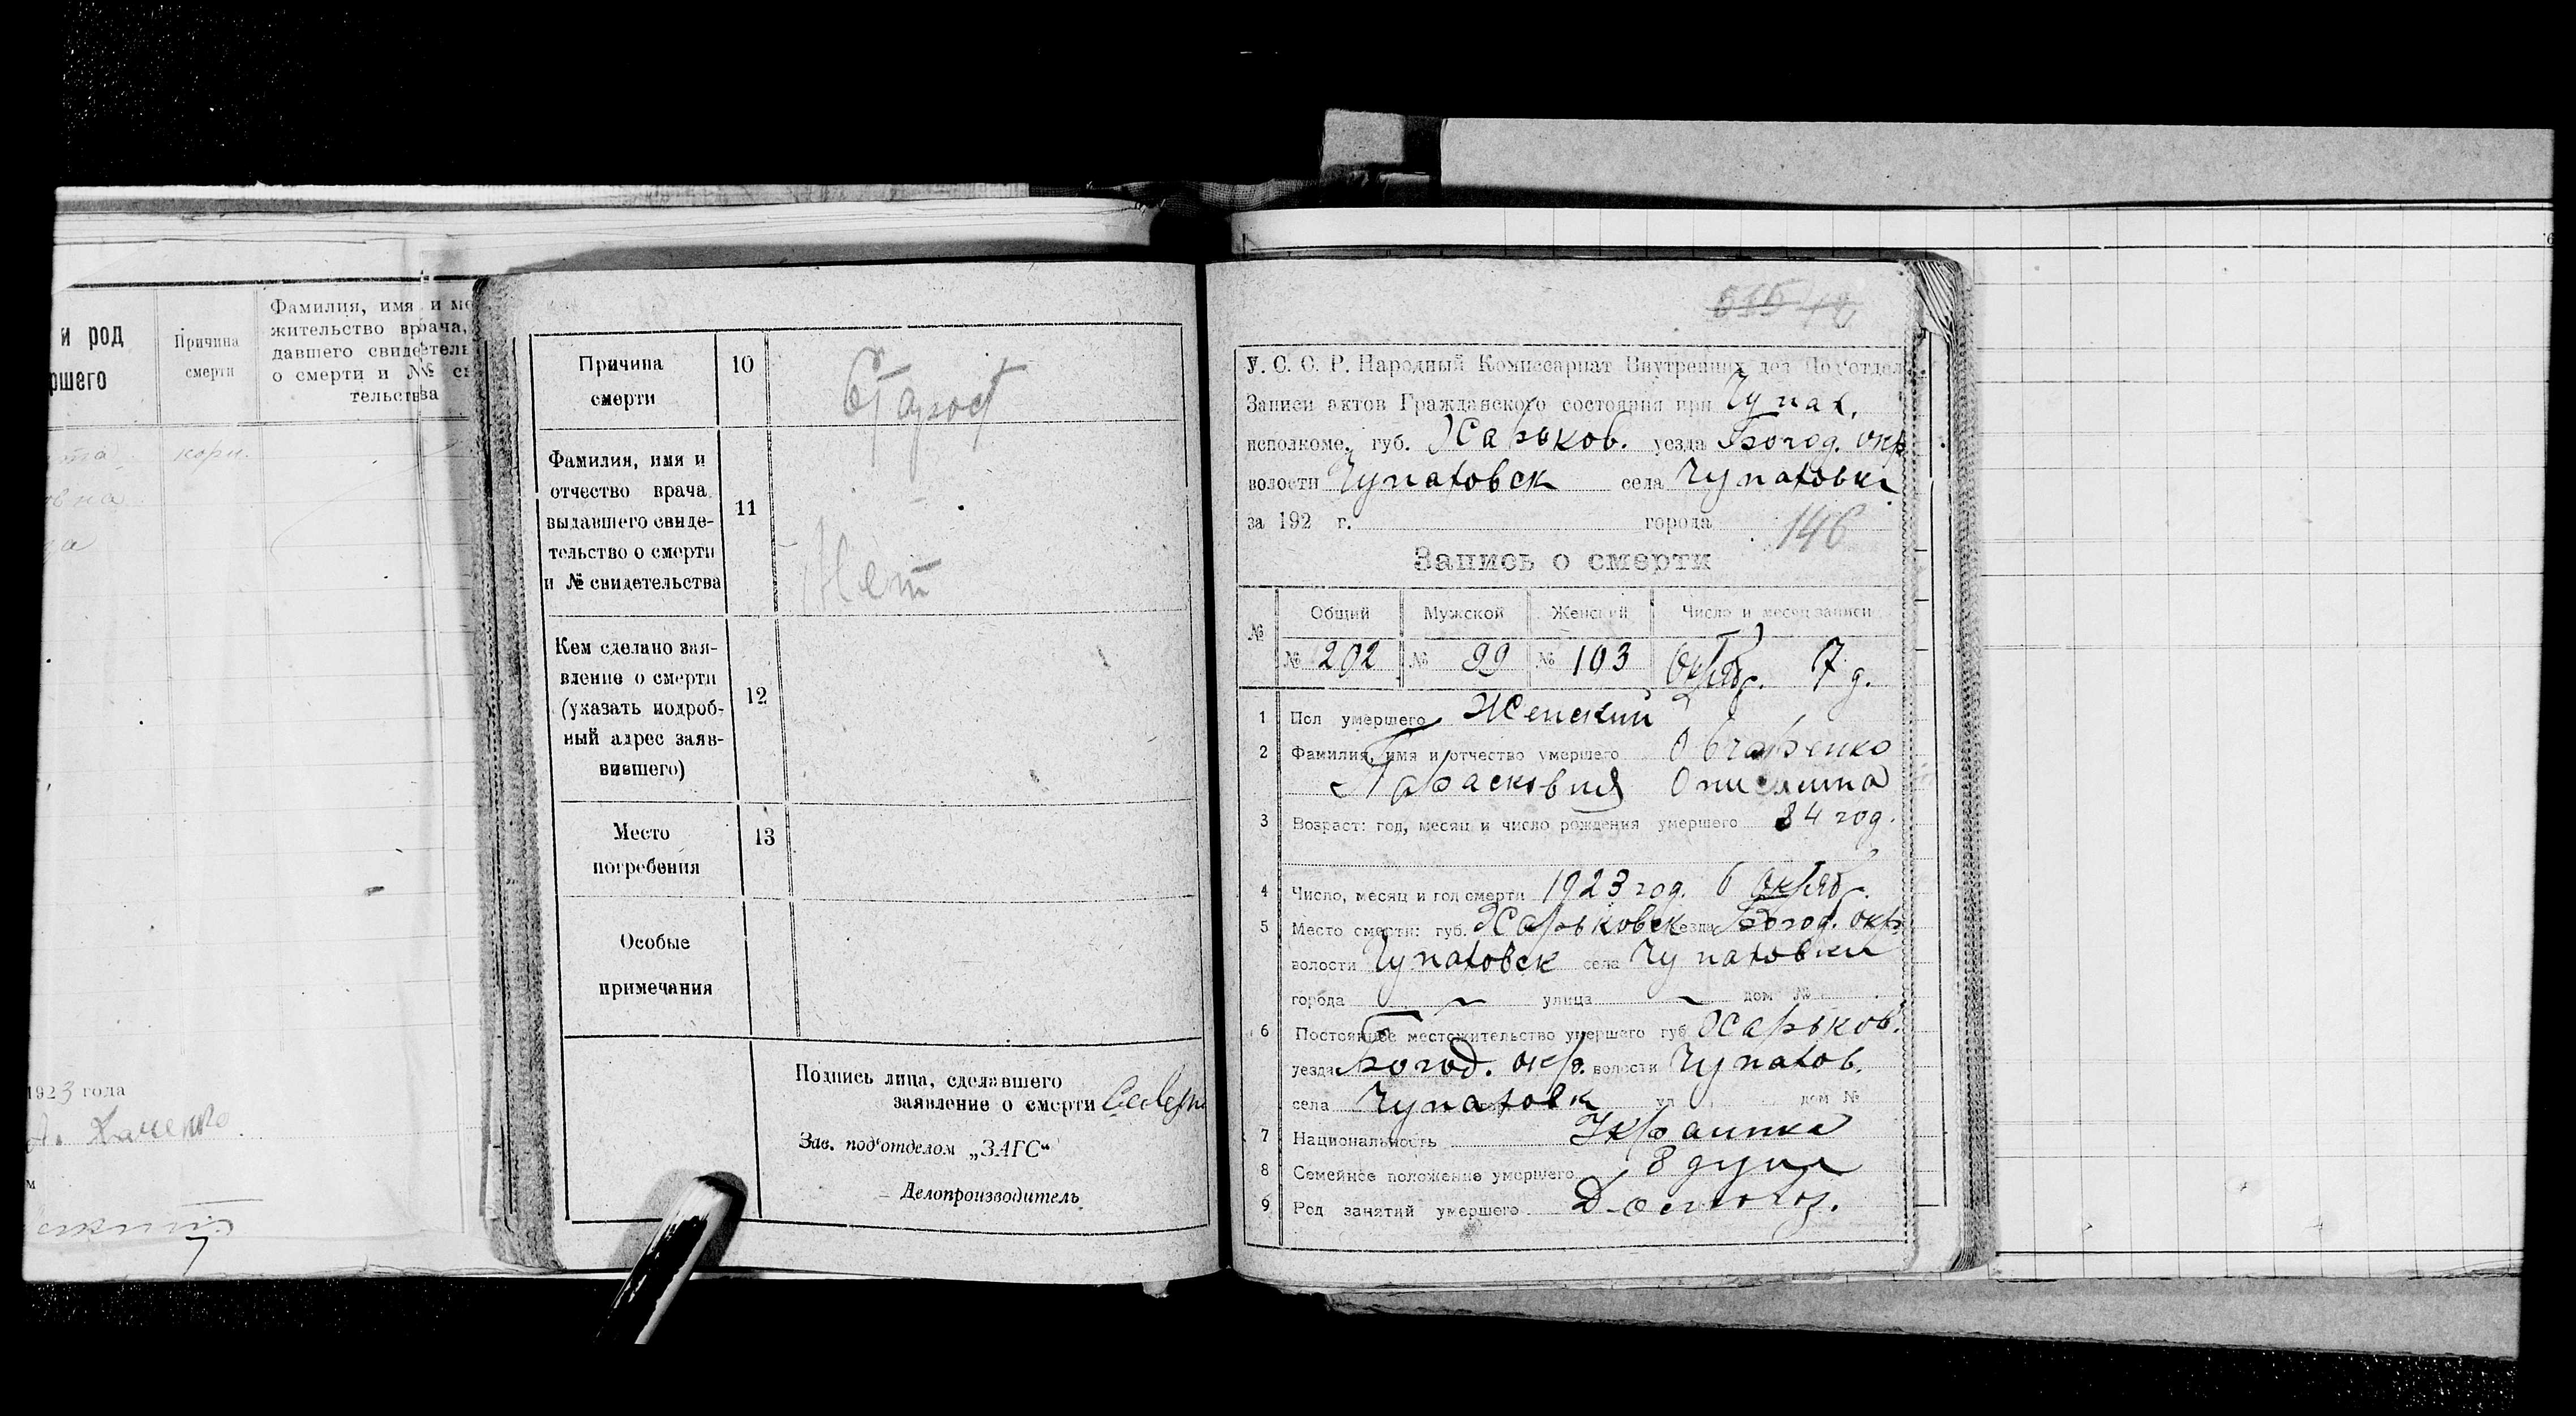 и род
ршего
Причина
смерти
Фамилия, имя и ме
жительство врача,
давшего свидетель
о смерти и №№ св
тельства
кори.
1923 года
Причина
смерти
10
Старост
Фамилия, имя и
отчество врача
выдавшего свиде-
тельство о смерти
и № свидетельства
11
Нет
Кем сделано зая-
вление о смерти
(указать подроб-
ный адрес заяв-
вившего)
12
Место
погребения
13
Особые
примечания
Подпись лица, сделавшего
заявление о смерти
Зав. под'отделом „ЗАГС“
Делопроизводитель
У. С. С. Р. Народный Комиссариат Внутренних дел Под'отдел
Записи актов Гражданского состояния при Чупах.
исполкоме, губ. Харьков. уезда Богод. окр
волости Чупаховск села Чупаховки
за 192 г. города 146
Запись о смерти
№ Общий Мужской Женский Число и месяц записи
№ 202 № 99 № 103 Октяб. 7 д.
1 Пол умершего Женский
2 Фамилия, имя и отчество умершего Овчаренко
Парасковия
3 Возраст: год, месяц и число рождения умершего 84 год.
4 Число, месяц и год смерти 1923 год. 6 Октяб.
5 Место смерти: губ. Харьковск уезда Богод. окр
волости Чупаховск села Чупаховки
города ~ улица ~ дом №
6 Постоянное местожительство умершего губ. Харьков.
уезда Богод. окр. волости Чупахов.
села Чупаховк ул дом №
7 Национальность Украинка
8 Семейное положение умершего 8 душ
9 Род занятий умершего Домохоз.